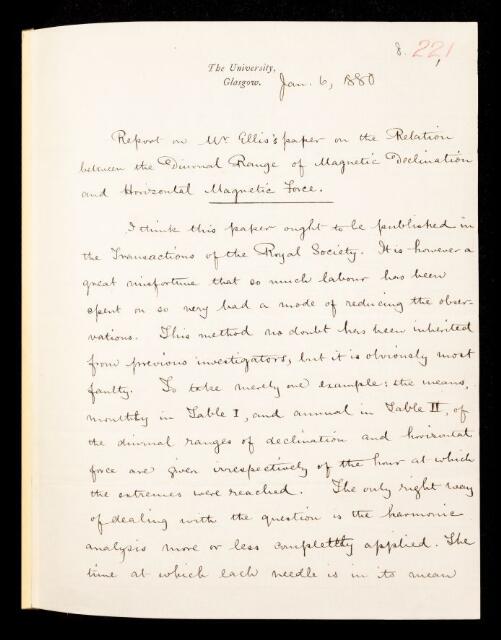 8. 221
The University,
Glasgow. Jan. 6, 1880
Report on Mr Ellis's paper on the Relation
between the Diurnal Range of Magnetic Declination
and Horizontal Magnetic Force.
I think this paper ought to be published in
the Transactions of the Royal Society. It is however a
great misfortune that so much labour has been
spent on so very bad a mode of reducing the obser-
vations. This method no doubt has been inherited
from previous investigators, but it is obviously most
faulty. To take merely one example: the means,
monthly in Table I, and annual in Table III, of
the diurnal ranges of declination and horizontal
force are given irrespectively of the hour at which
the extremes were reached. The only right way
of dealing with the question is the harmonic
analysis more or less completely applied. The
time at which each needle is in its mean